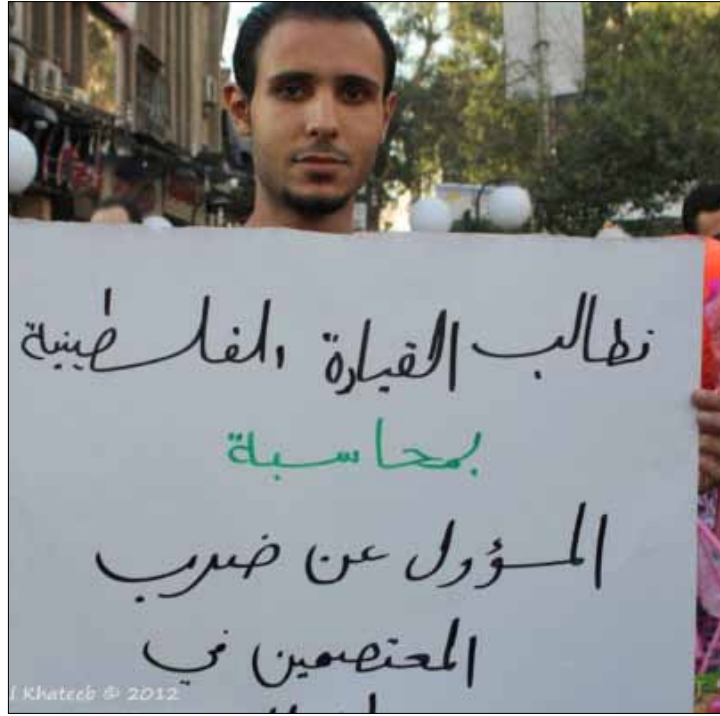 نطالب القيادة الفلسطينية
بمحاسبة
المسؤول عن ضرب
المعتصمين في
Khateeb © 2012